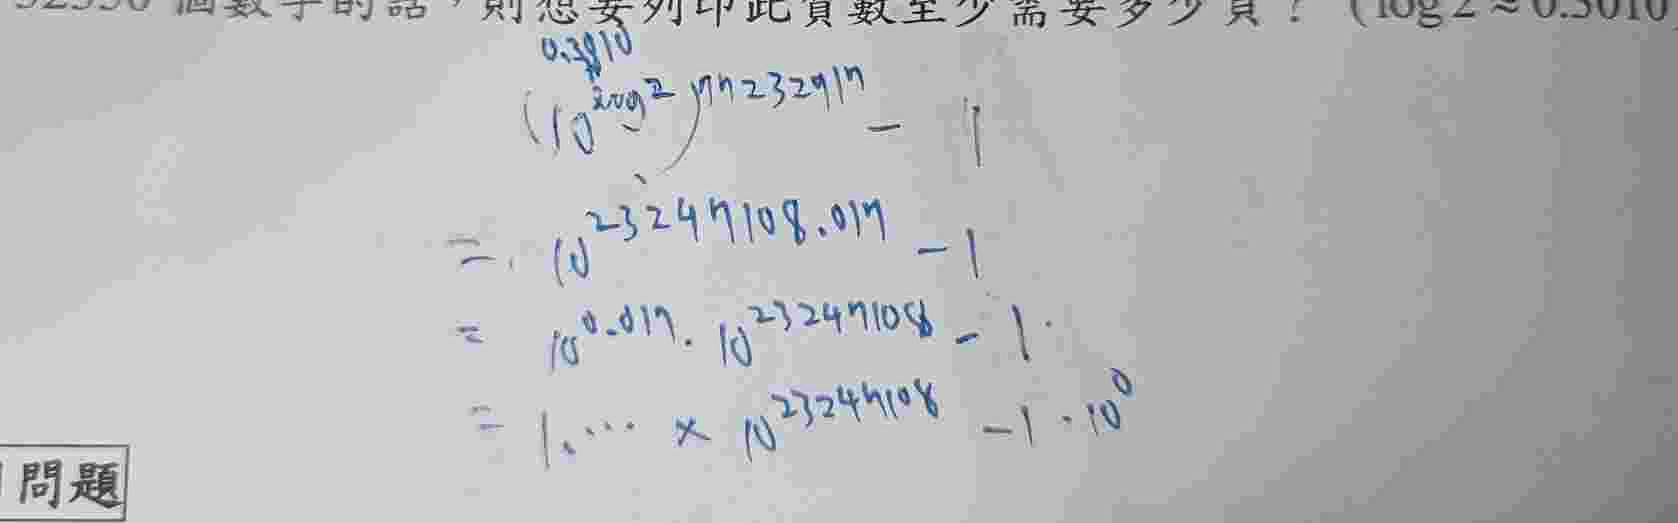 個數字的話,則想要列印此質數至少需要多少頁?(log2≈0.3010
0.3010
(10^log2)^77232917 - 1
= 10^23247108.017 - 1
= 10^0.017 · 10^23247108 - 1
= 1.… × 10^23247108 - 1 · 10^0
問題